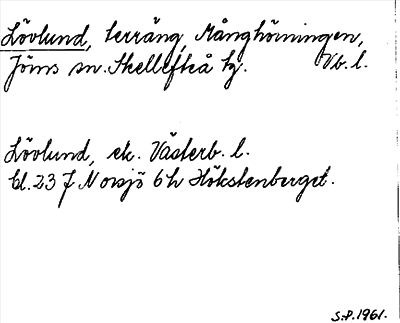 Lövlund, terräng, Månghörningen,
Jörns sn. Skellefteå tg. Vb. l.
Lövlund, ek. Västerb. l.
bl. 23 J Norsjö 6h Hökstenberget.
S.P. 1961.